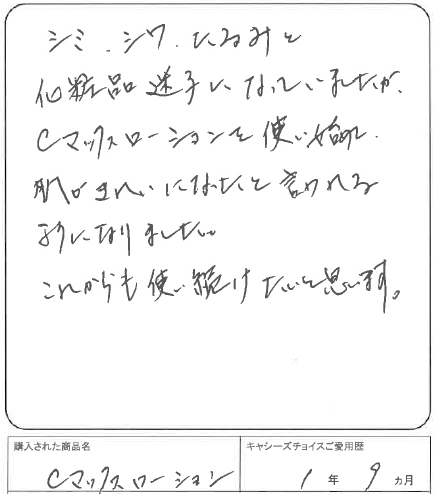 シミ、シワ、たるみと
化粧品迷子になっていましたが、
Cマックスローションを使い始め、
肌がきれいになったと言われる
ようになりました。
これからも使い続けたいと思います。
購入された商品名
Cマックスローション
キャシーズチョイスご愛用歴
1年9ヵ月